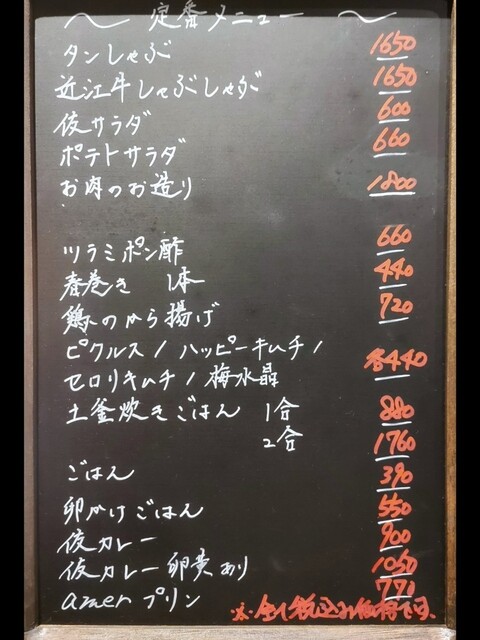 〜 定番メニュー 〜
タンしゃぶ 1650
近江牛しゃぶしゃぶ 1650
俺サラダ 600
ポテトサラダ 660
お肉のお造り 1800
ツラミポン酢 660
春巻き 1本 440
鶏のから揚げ 720
ピクルス / ハッピーキムチ /
セロリキムチ / 梅水晶 各440
土釜炊きごはん 1合 880
2合 1760
ごはん 390
卵かけごはん 550
俺カレー 900
俺カレー 卵黄あり 1050
amer プリン 771
※全て税込み価格です。